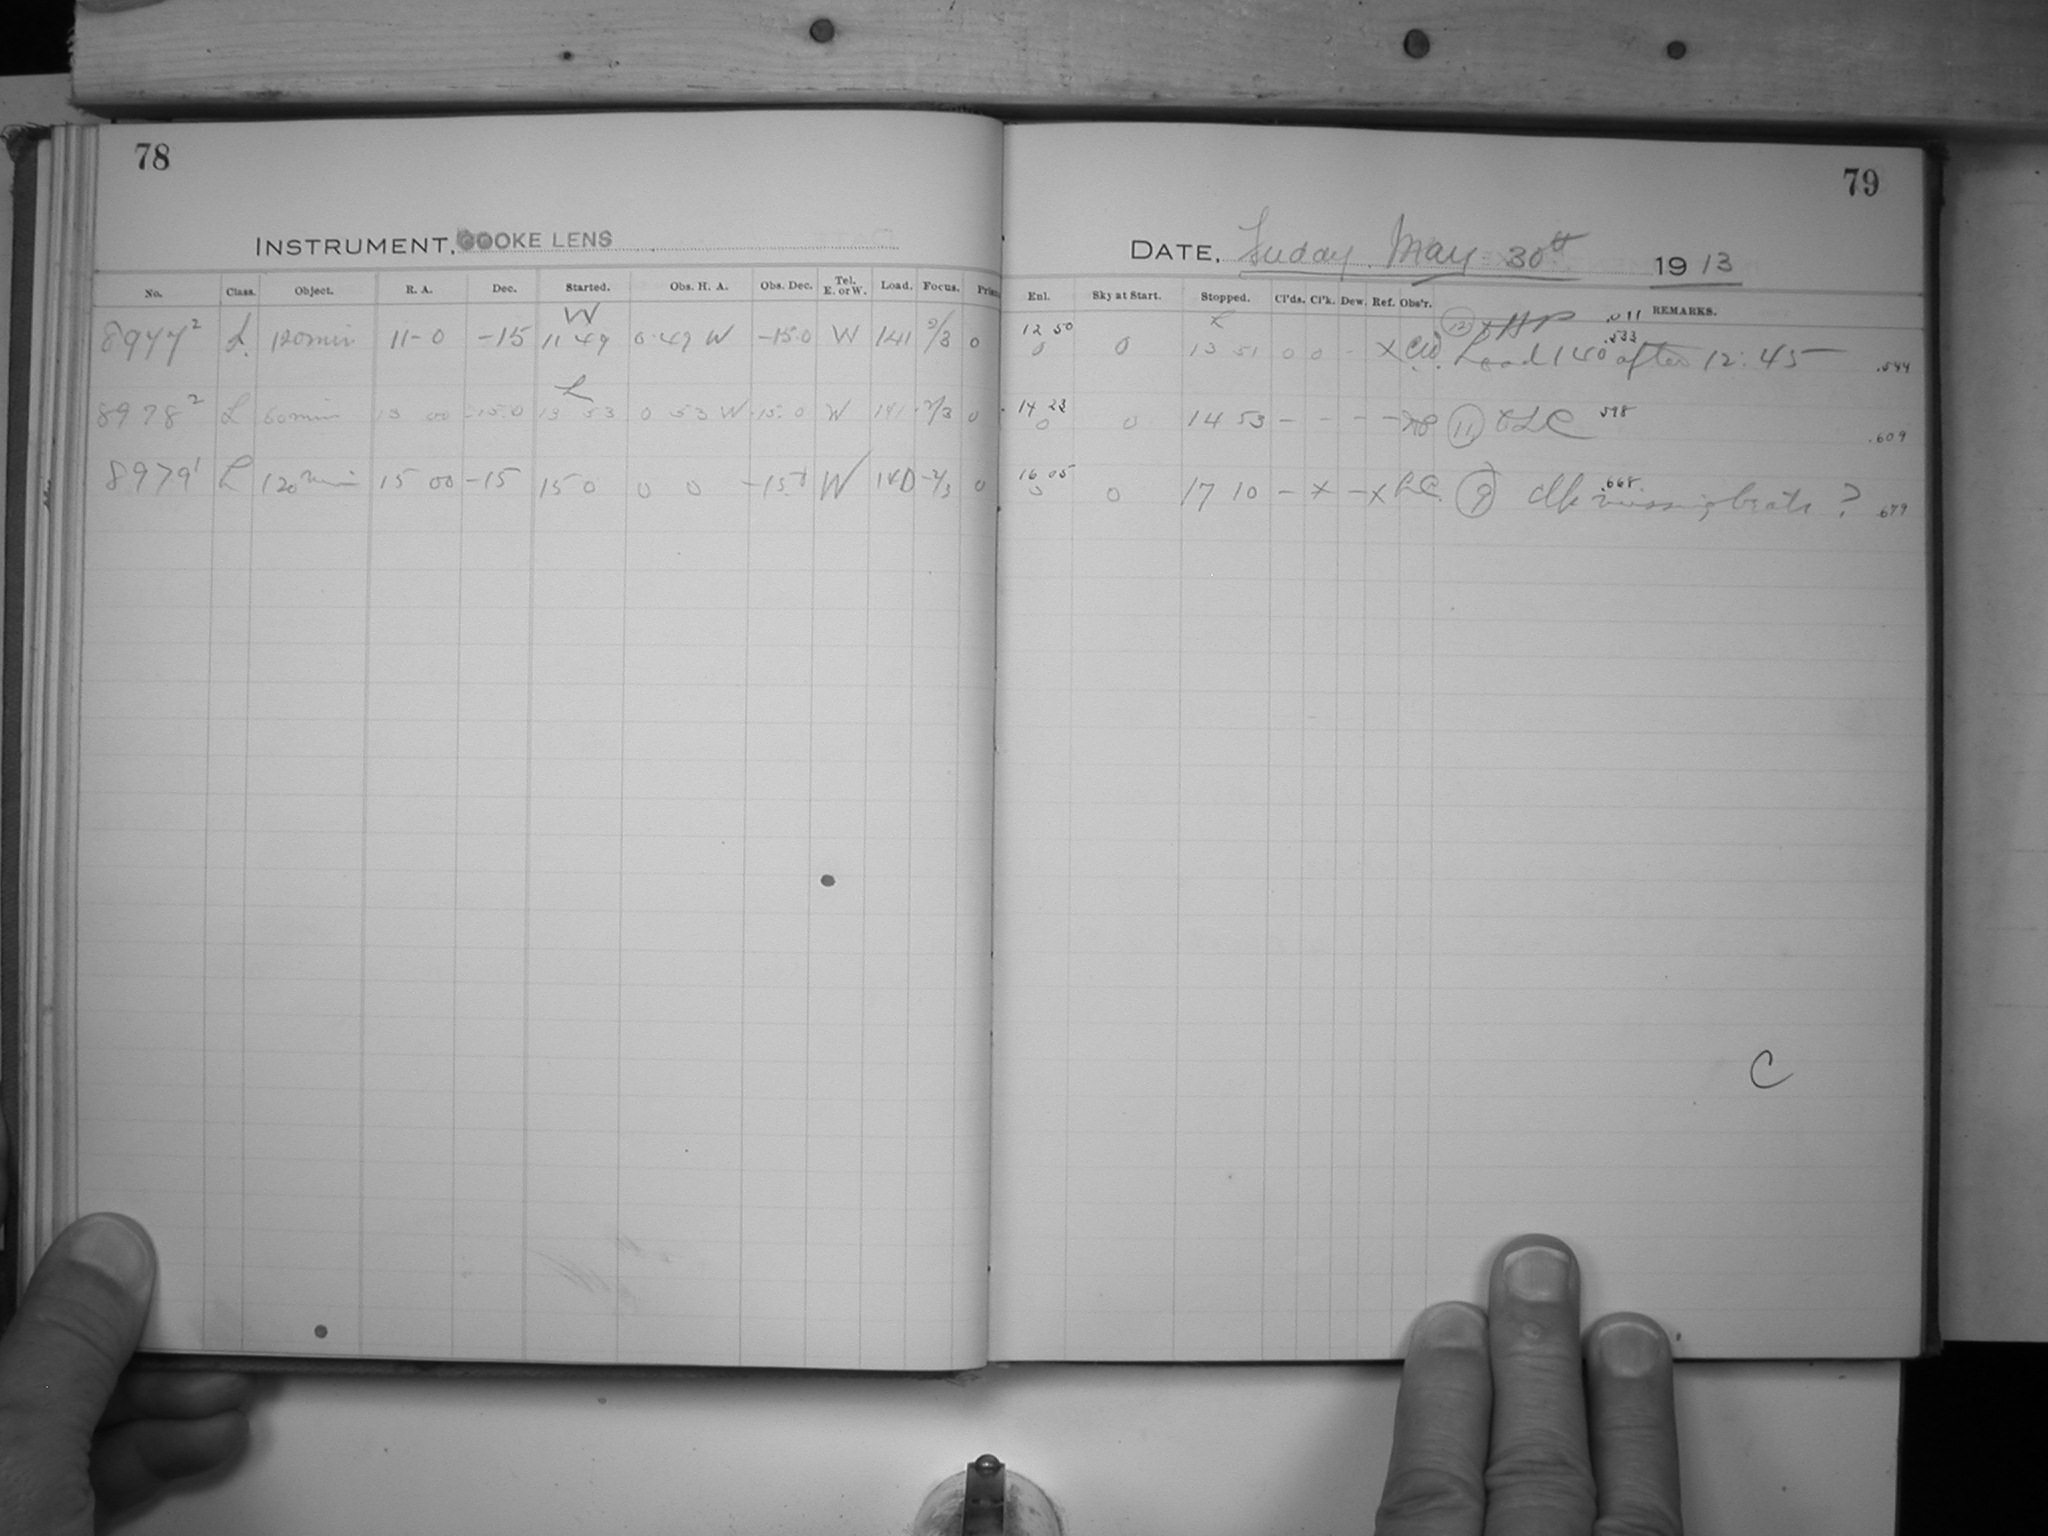 78
INSTRUMENT, COOKE LENS
No. Class. Object. R. A. Dec. Started. Obs. H. A. Obs. Dec. Tel. E. or W. Load. Focus.
W
8977² L. 120 min 11-0 -15 11 49 0.49 W -15.0 W 141 2/3 0
L
8978² L 60 min 13 00 -15.0 13 53 0 53 W -15.0 W 141 -2/3 0
8979¹ L 120 min 15 00 -15 15 0 0 0 W 140 -2/3 0
79
DATE, Friday May 30th 1913
Enl. Sky at Start. Stopped. Cl'ds. Cl'k. Dew. Ref. Obs'r. REMARKS.
12 50
0 0 13 51 0 0 - X Load 140 after 12:45 .533 .544
14 23
0 0 14 53 - - - - (11) LC .598 .609
16 05
0 0 17 10 - X - X LC. (9) clk missing beats ? .668 .679
C